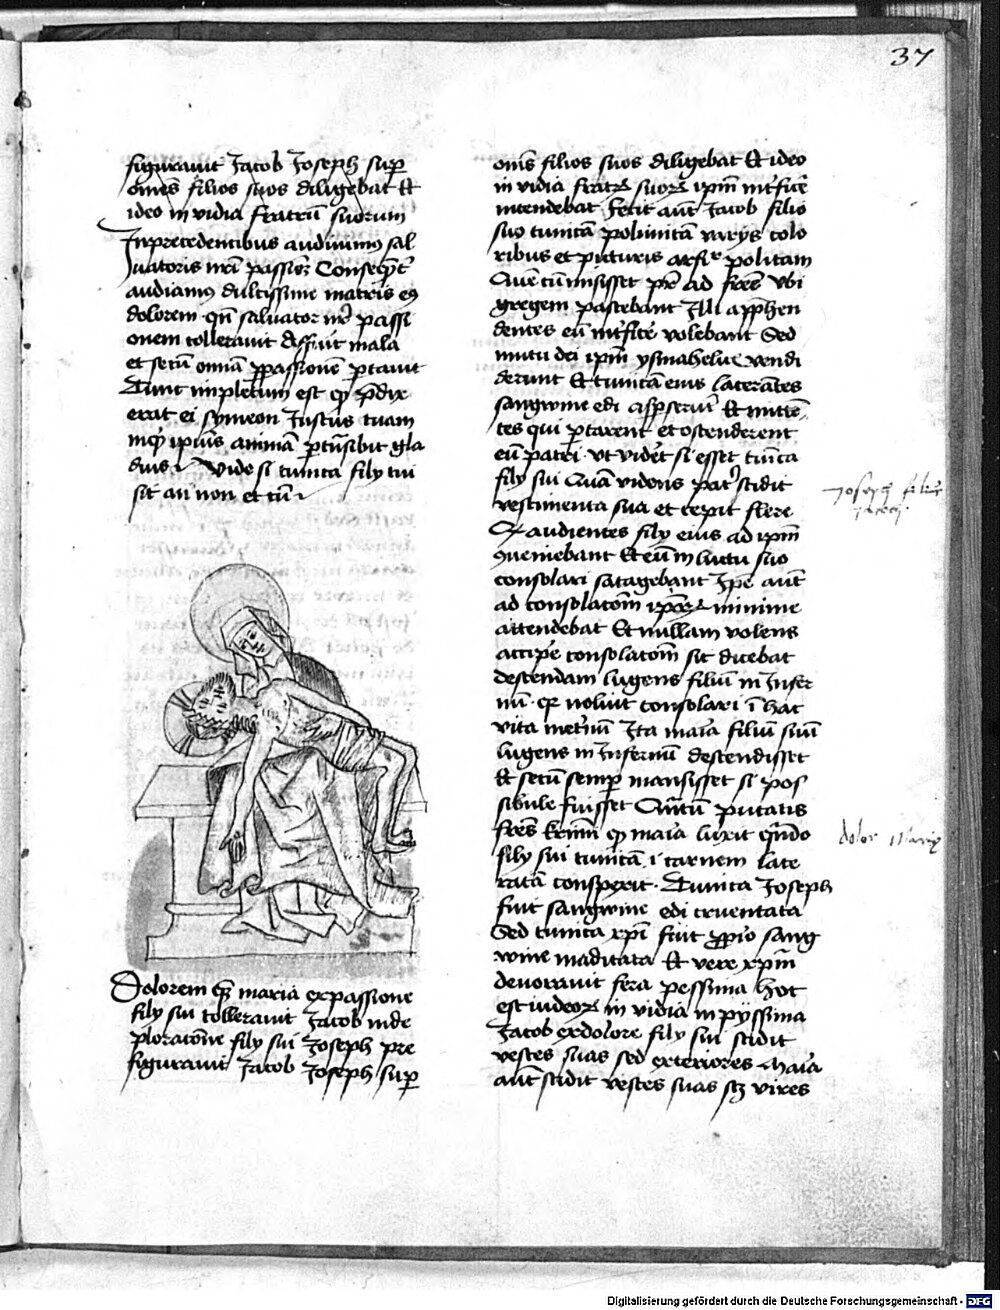 37
figurauit Jacob Joseph sup̄
om̄es filios suos diligebat Et
ideo in vidia fratrū suorum
Inprecedentibus audiuimꝰ sal
uatoris nr̄i passiōeʒ Conseq̄ut̄
audiamꝰ dultissime matris eꝰ
dolorem qn̄ saluator nr̄ passi
onem tollerauit Affuit mala
et secū omnia ꝯpassione ꝑtauit
Tunc impletum est qđ p̄dix
erat ei symeon Justus tuam
inqͥ ipiūs animā ꝑtrāsibit gla
dius Vide si tunica filij tui
sit an non et cū
Dolorem qͥ maria expassione
filij sui tollerauit Jacob inde
ploratōne filij sui Joseph pre
figurauit Jacob Joseph sup̄
om̄s filios suos diligebat Et ideo
in vidia fratrꝝ suorꝝ ip̄m int̓ficē
intendebat fecit aūt Jacob filio
suo tunicā polimitā varijs colo
ribus et picturis artfiᵉ politam
Quē cū misisset pr̄ ad fr̄es vbi
gregem pastebant Illi app̄hen
dentes eū int̓ficē volebant Sed
nutu dei ip̄m ysmahelit̄ vendi
derunt Et tunicā eius laterātes
sangwine edi asp̄serūt Et mitte
tes qui ꝑtarent et ostenderent
eū patri vt vidēt si esset tunīca
filij sui Quā videns pat̓ scidit
vestimenta sua et cepit flere
Qđ audientes filij eius ad ip̄m
ꝯueniebant Et eū in luctu suo
consolari satagebant Ip̄e aūt
ad consolatōm ip̄orꝝ minime
attendebat Et nullam volens
accipe consolatōm sic dicebat
descendam lugens filiū in Infer
nū qꝛ noluit consolari ī hac
vita met̓nū Ita mar̓a filiū suū
lugens in Infernū descendisset
Et secū semp̄ mansisset si pos
sibile fuisset Qn̄tū putatis
fr̄es kr̄mi qđ mar̓a luxit qn̄do
filij sui tunicā i carnem late
ratā conspexit Tunica Joseph
fuit sangwine edi cruentata
Sed tunica xp̄i fuit ꝓprio sang
wine madidata Et vere xp̄m
deuorauit fera pessima hoc
est iudeorꝝ in vidia inpijssima
Jacob exdolore filij sui scidit
vestes suas sed exteriores Mar̓a
aūt scidit vestes suas sʒ vires
Joseph filius
Jacob
dolor Mariæ
Digitalisierung gefördert durch die Deutsche Forschungsgemeinschaft - DFG